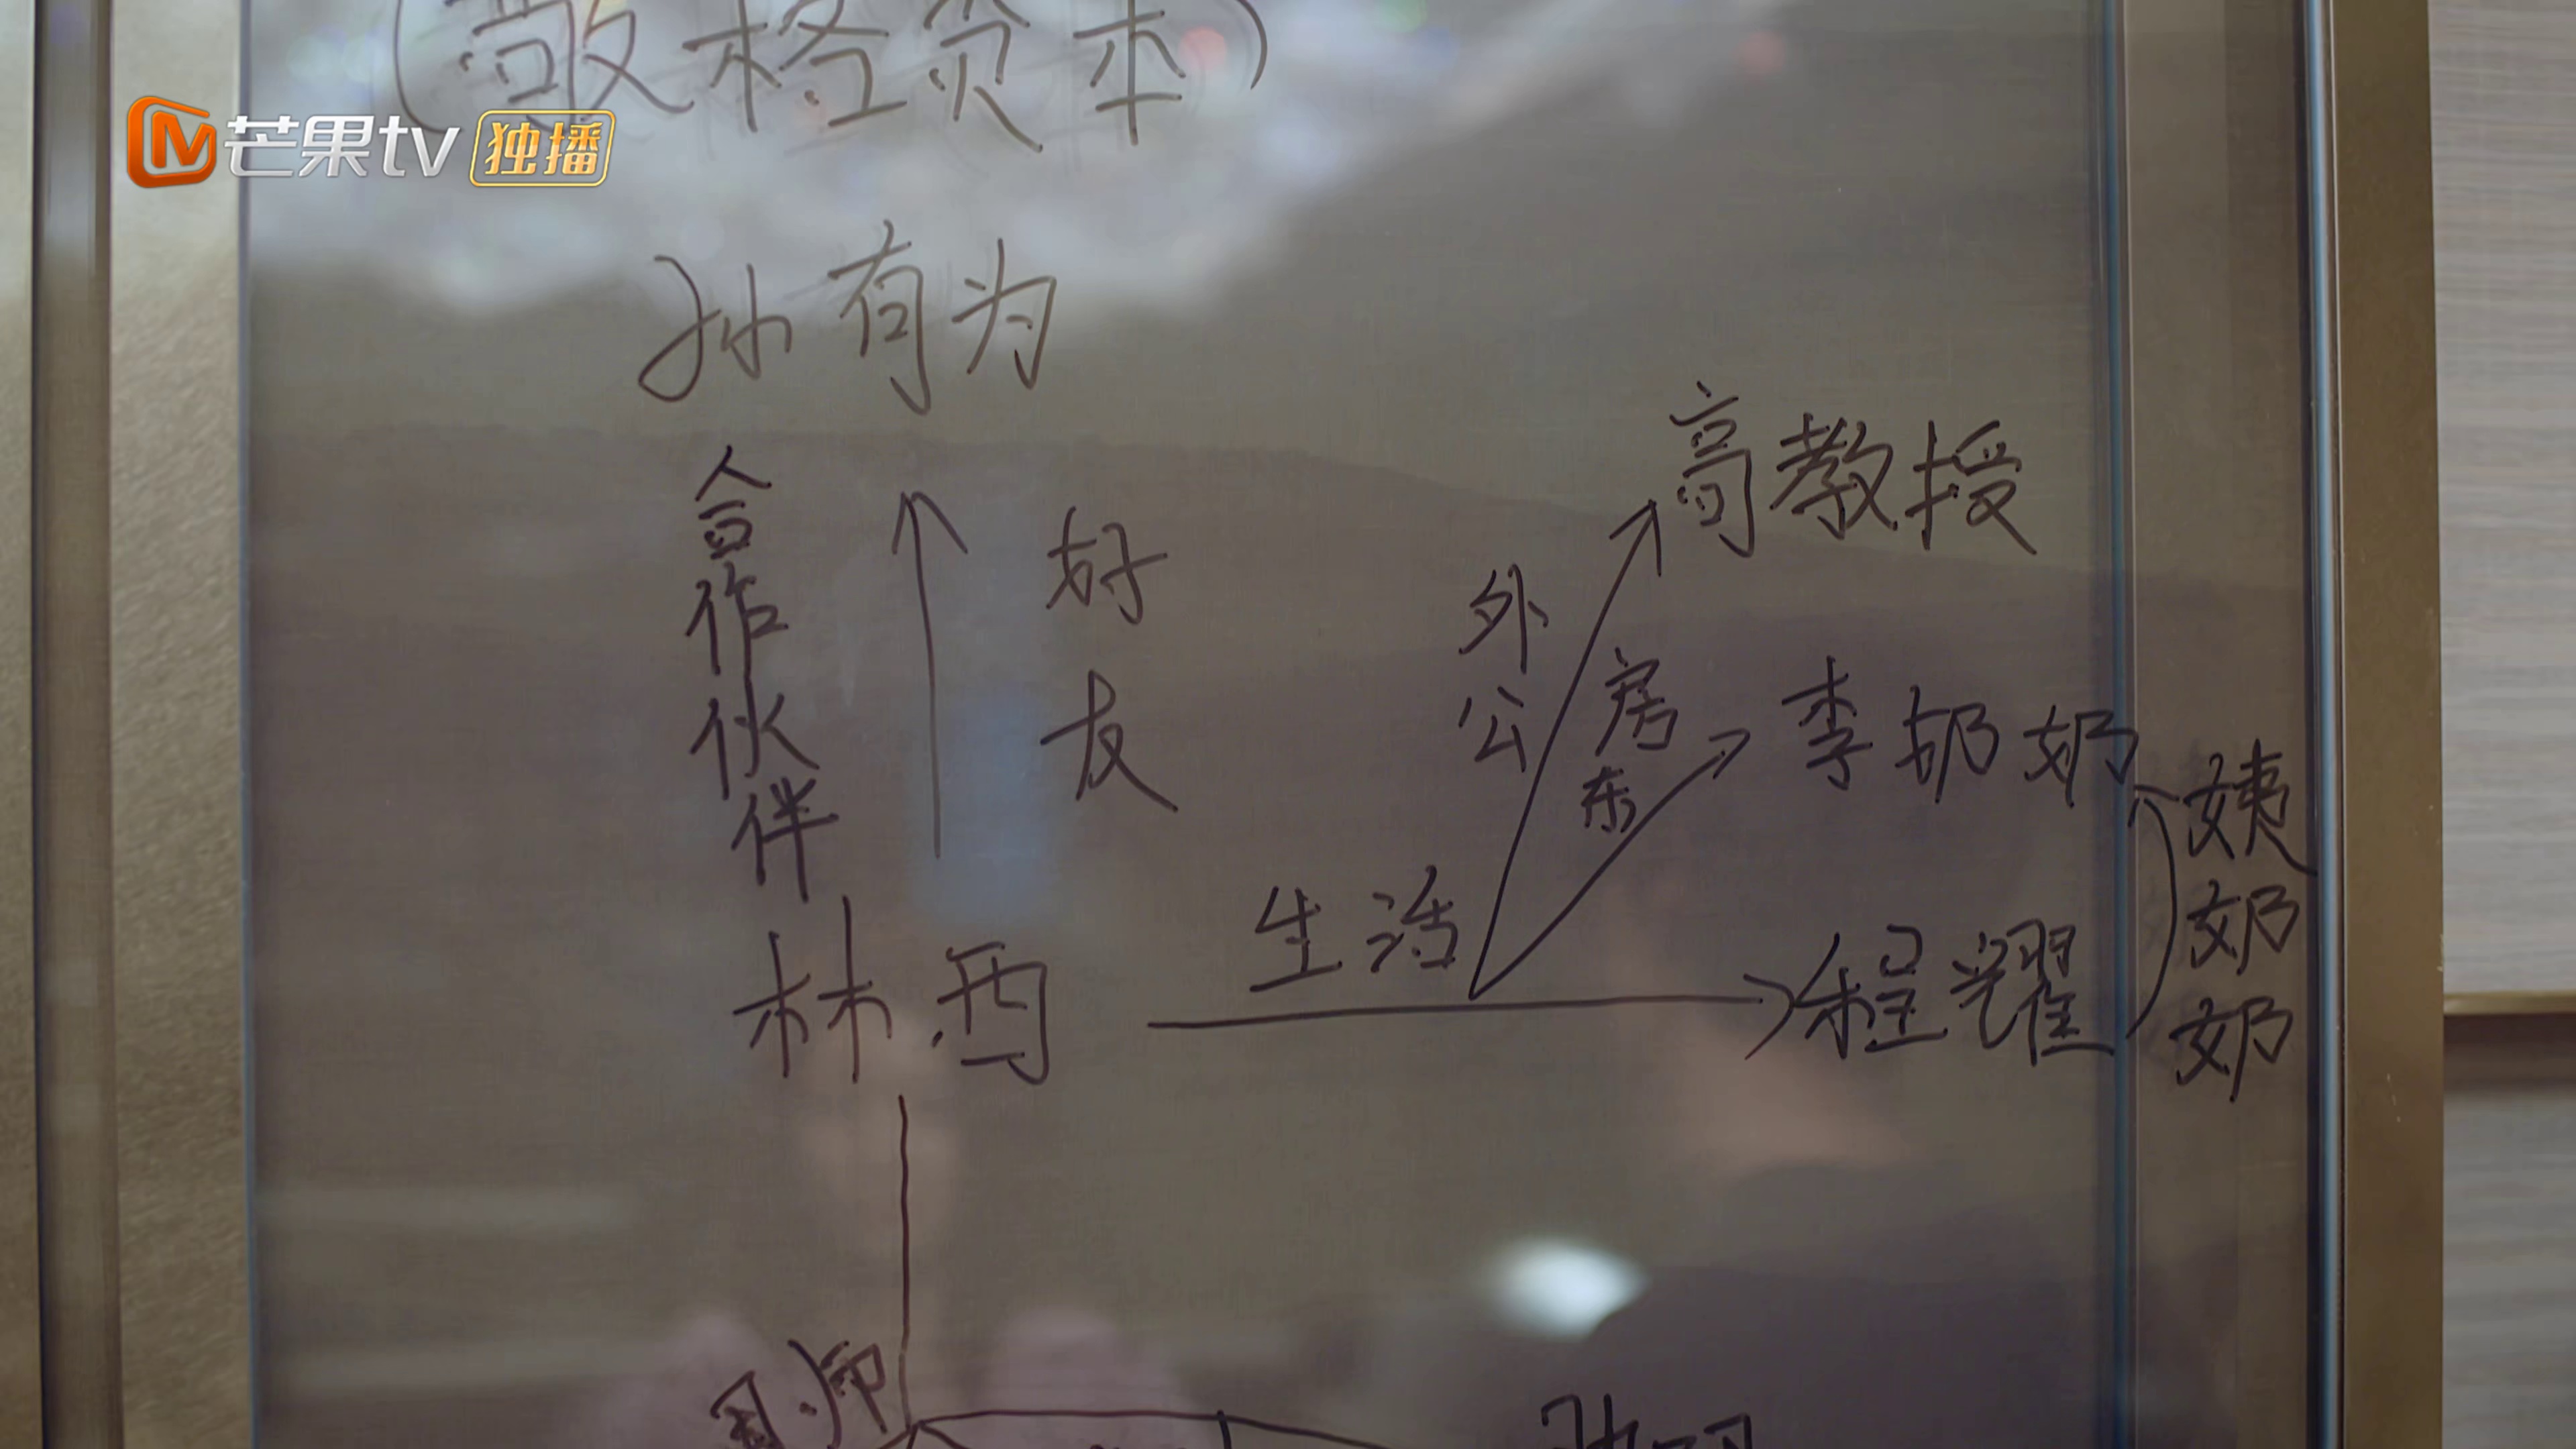 (敬格资本)
芒果tv 独播
孙有为
合作伙伴
好友
高教授
外公
房东
李奶奶
姨奶奶
生活
程耀
林西